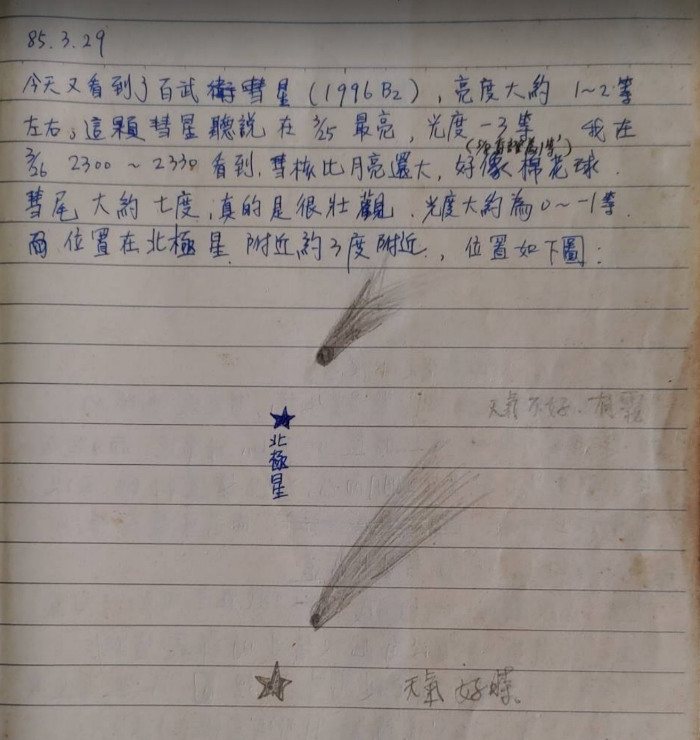 85.3.29
今天又看到了百武衛彗星(1996 B2),亮度大約 1~2等
左右。這顆彗星聽說在 3/25 最亮,光度 -3等 我在
3/26 2300 ~ 2330 看到.彗核比月亮還大,好像棉花球.
彗尾大約七度,真的是很壯觀.光度大約為0~-1等.
而位置在北極星附近,約3度附近.,位置如下圖:
天氣不好.有雲
北極星
天氣好時。